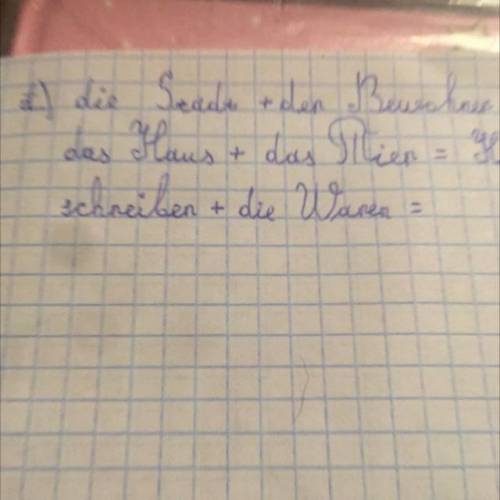 1) die Stadt + der Bewohner
das Haus + das Tier = H
schreiben + die Waren =